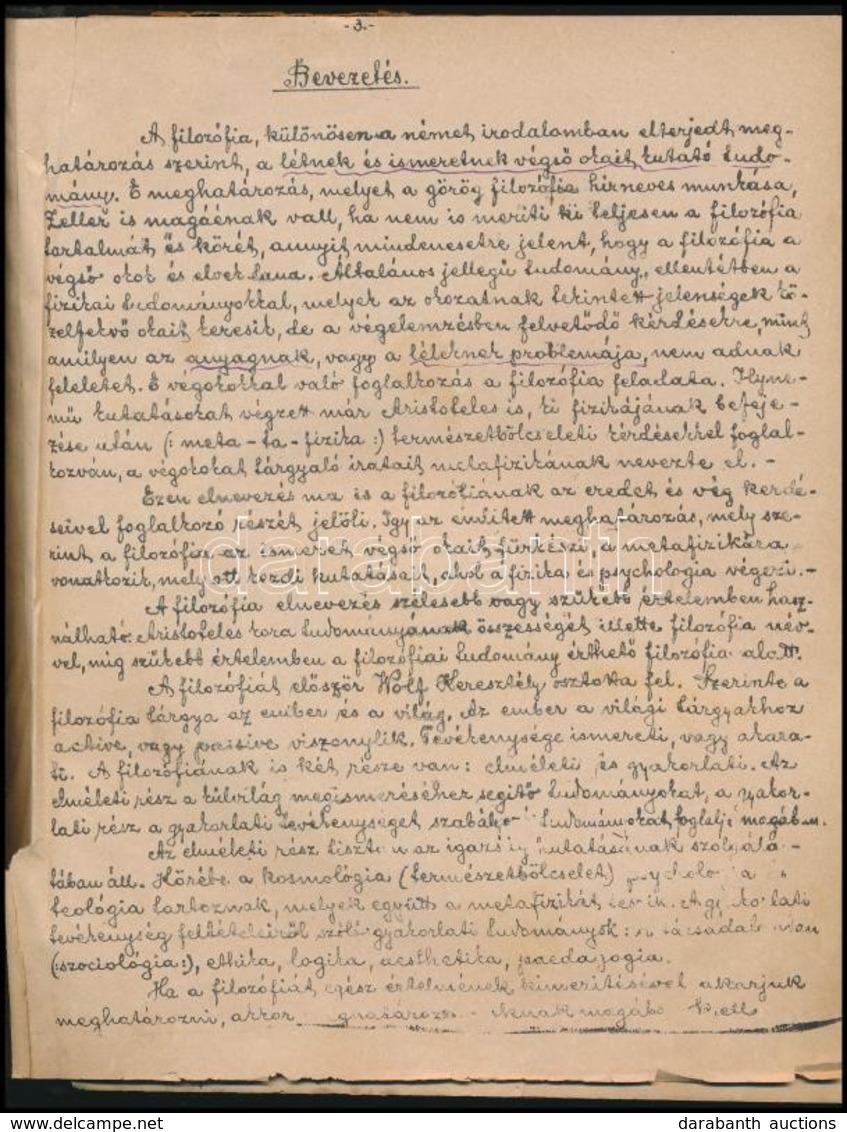 -3.-
Bevezetés.
A filozófia, különösen a német irodalomban elterjedt meg-
határozás szerint, a létnek és ismeretnek végső okait kutató tudo-
mány. E meghatározás, melyet a görög filozófia hírneves munkása,
Zeller is magáénak vall, ha nem is meríti ki teljesen a filozófia
tartalmát és körét, annyit mindenesetre jelent, hogy a filozófia a
végső okok és elvek tana. Általános jellegű tudomány, ellentétben a
fizikai tudományokkal, melyek az okozatnak tekintett jelenségek kö-
zelfekvő okait keresik, de a végelemzésben felvetődő kérdésekre, mint
amilyen az anyagnak, vagy a léleknek problemája, nem adnak
feleletet. E végokokkal való foglalkozás a filozófia feladata. Ilyne-
mű kutatásokat végzett már Aristoteles is, ki fizikájának befeje-
zése után (: meta-ta-fizika :) természetbölcseleti kérdésekkel foglal-
kozván, a végokokat tárgyaló iratait metafizikának nevezte el. -
Ezen elnevezés ma is a filozófiának az eredet és vég kérdé-
seivel foglalkozó részét jelöli. Így az említett meghatározás, mely sze-
rint a filozófia az ismeret végső okait fürkészi, a metafizikára
vonatkozik, mely ott kezdi kutatásait, ahol a fizika és psychologia végezi. -
A filozófia elnevezés szélesebb vagy szűkebb értelemben hasz-
nálható. Aristoteles kora tudományának összességét illette filozófia név-
vel, míg szűkebb értelemben a filozófiai tudomány érthető filozófia alatt.
A filozófiát először Wolf Keresztély osztotta fel. Szerinte a
filozófia tárgya az ember és a világ. Az ember a világi tárgyakhoz
active, vagy passive viszonylik. Tevékenysége ismereti, vagy akara-
ti. A filozófiának is két része van: elméleti és gyakorlati. Az
elméleti rész a külvilág megismeréséhez segítő tudományokat, a gyakor-
lati rész a gyakorlati tevékenységet tudományokat foglalja magában.
Az elméleti rész az igazság kutatásának szolgála-
tában áll. Körébe a kosmológia (természetbölcselet)
teológia tartoznak, melyek együtt a metafizikát
tevékenység feltételeiről szóló gyakorlati tudományok:
(: szociológia :), ethika, logika, aesthetika, paedagogia.
Ha a filozófiát egész értelmének kimerítésével akarjuk
meghatározni, akkor
darabanth
© www.delcampe.net
darabanth auctions